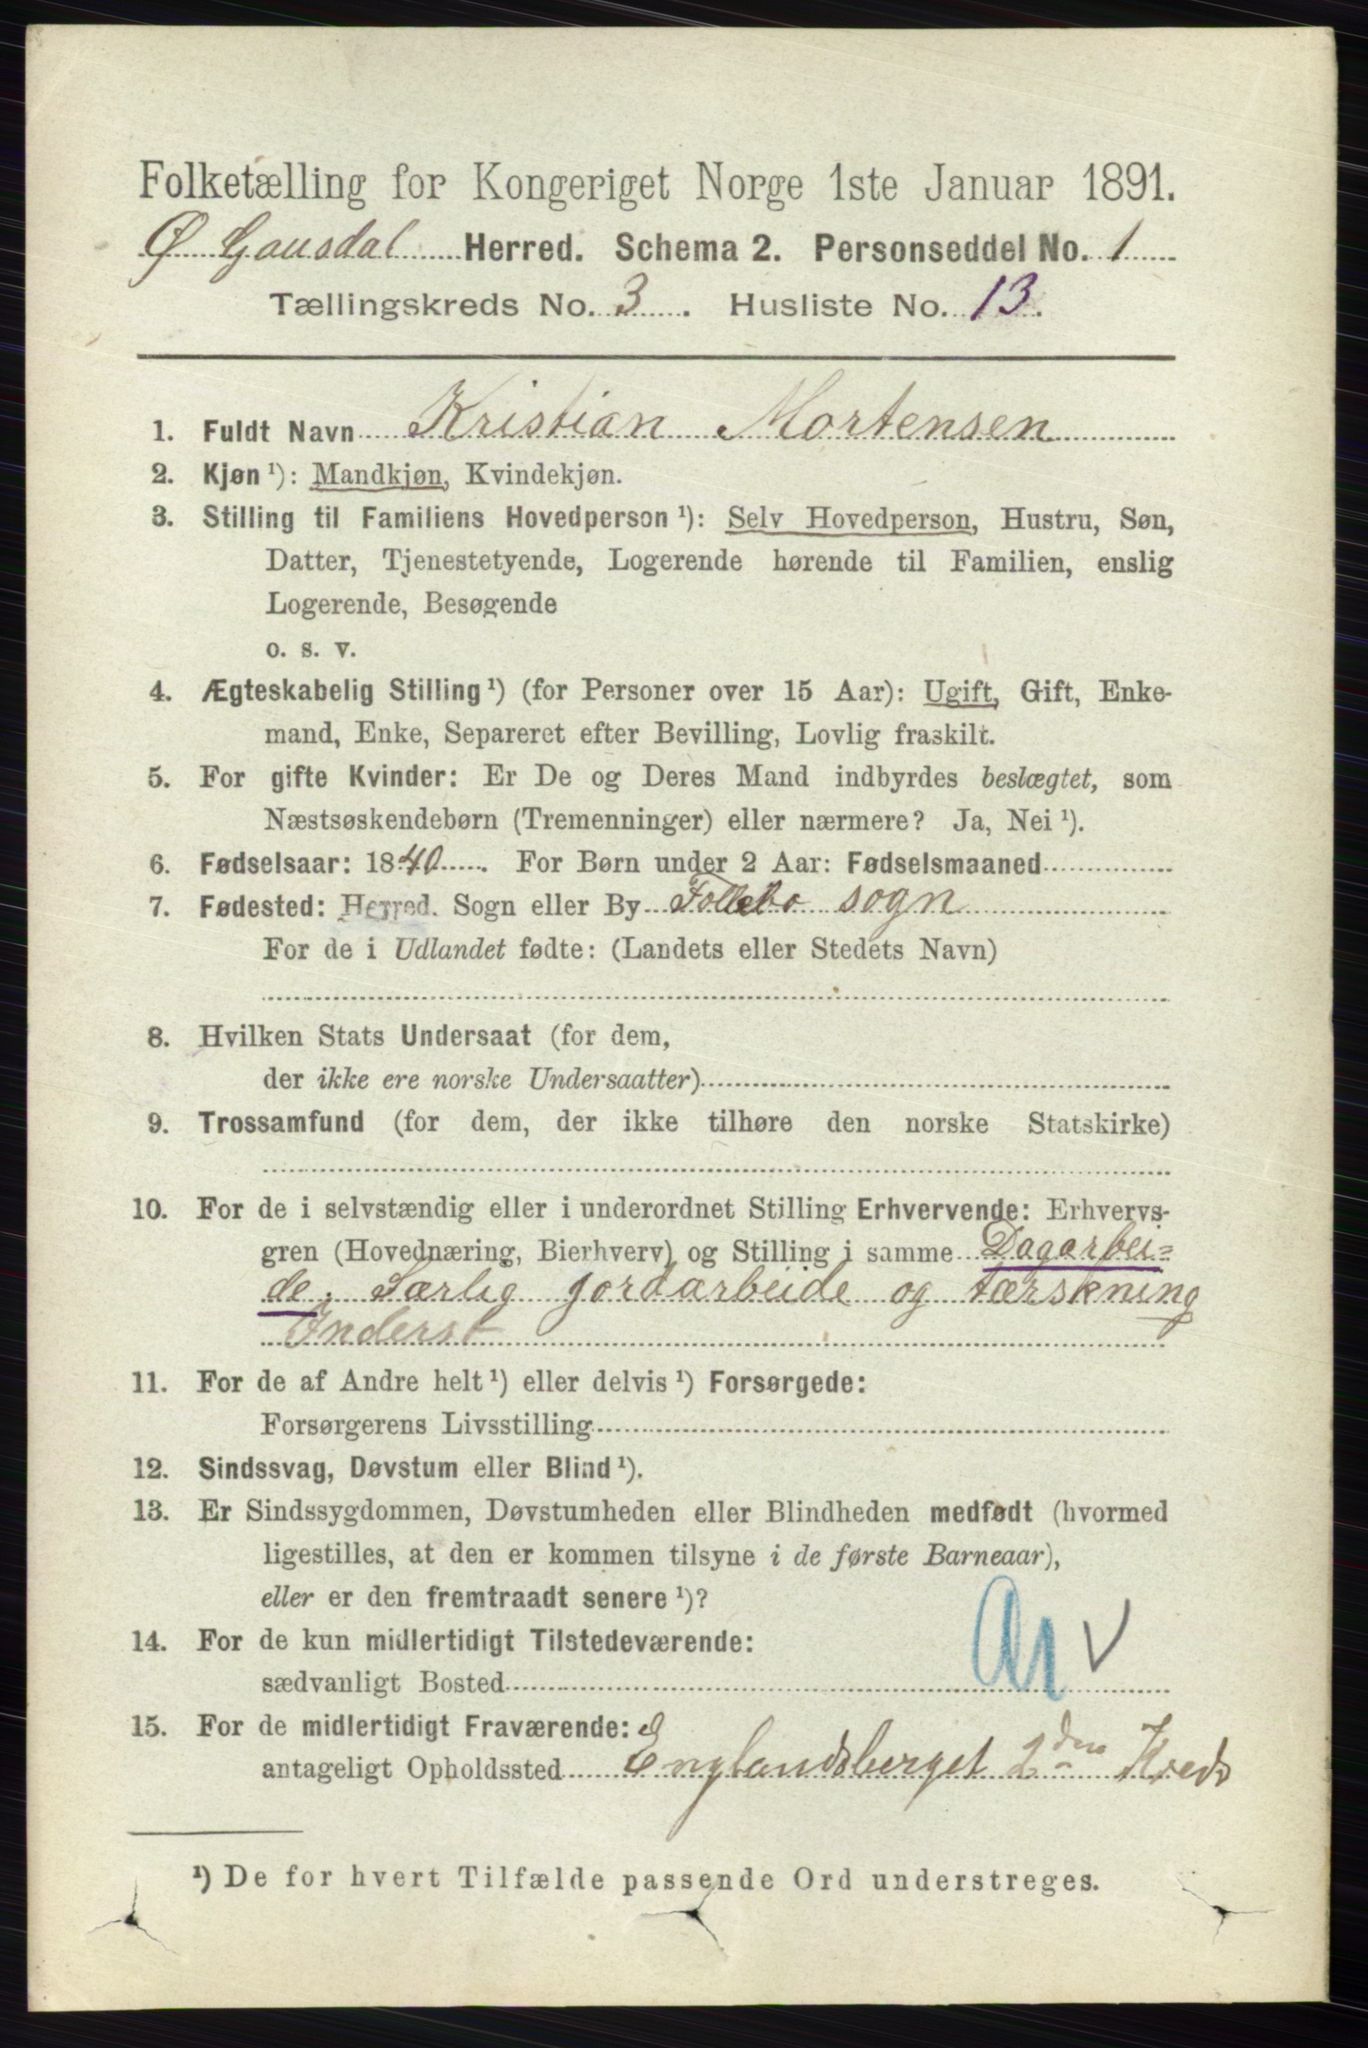 Folketælling for Kongeriget Norge 1ste Januar 1891.
Ø Gausdal Herred. Schema 2. Personseddel No. 1
Tællingskreds No. 3. Husliste No. 13.
1. Fuldt Navn Kristian Mortensen
2. Kjøn ¹): Mandkjøn, Kvindekjøn.
3. Stilling til Familiens Hovedperson ¹): Selv Hovedperson, Hustru, Søn,
Datter, Tjenestetyende, Logerende hørende til Familien, enslig
Logerende, Besøgende
o. s. v.
4. Ægteskabelig Stilling ¹) (for Personer over 15 Aar): Ugift, Gift, Enke-
mand, Enke, Separeret efter Bevilling, Lovlig fraskilt.
5. For gifte Kvinder: Er De og Deres Mand indbyrdes beslægtet, som
Næstsøskendebørn (Tremenninger) eller nærmere? Ja, Nei ¹).
6. Fødselsaar: 1840. For Børn under 2 Aar: Fødselsmaaned
7. Fødested: Herred. Sogn eller By Follebo sogn
For de i Udlandet fødte: (Landets eller Stedets Navn)
8. Hvilken Stats Undersaat (for dem,
der ikke ere norske Undersaatter)
9. Trossamfund (for dem, der ikke tilhøre den norske Statskirke)
10. For de i selvstændig eller i underordnet Stilling Erhvervende: Erhvervs-
gren (Hovednæring, Bierhverv) og Stilling i samme Dagarbei=
de. Særlig jordarbeide og tærskning
Inderst
11. For de af Andre helt ¹) eller delvis ¹) Forsørgede:
Forsørgerens Livsstilling
12. Sindssvag, Døvstum eller Blind ¹).
13. Er Sindssygdommen, Døvstumheden eller Blindheden medfødt (hvormed
ligestilles, at den er kommen tilsyne i de første Barneaar),
eller er den fremtraadt senere ¹)?
14. For de kun midlertidigt Tilstedeværende:
sædvanligt Bosted
15. For de midlertidigt Fraværende:
antageligt Opholdssted Englandsberget 2den Kreds
¹) De for hvert Tilfælde passende Ord understreges.